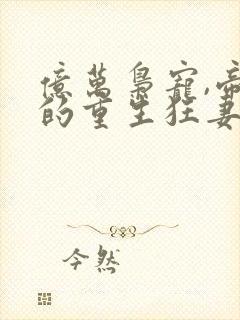 億萬梟寵,帝
的重生狂妻
今然